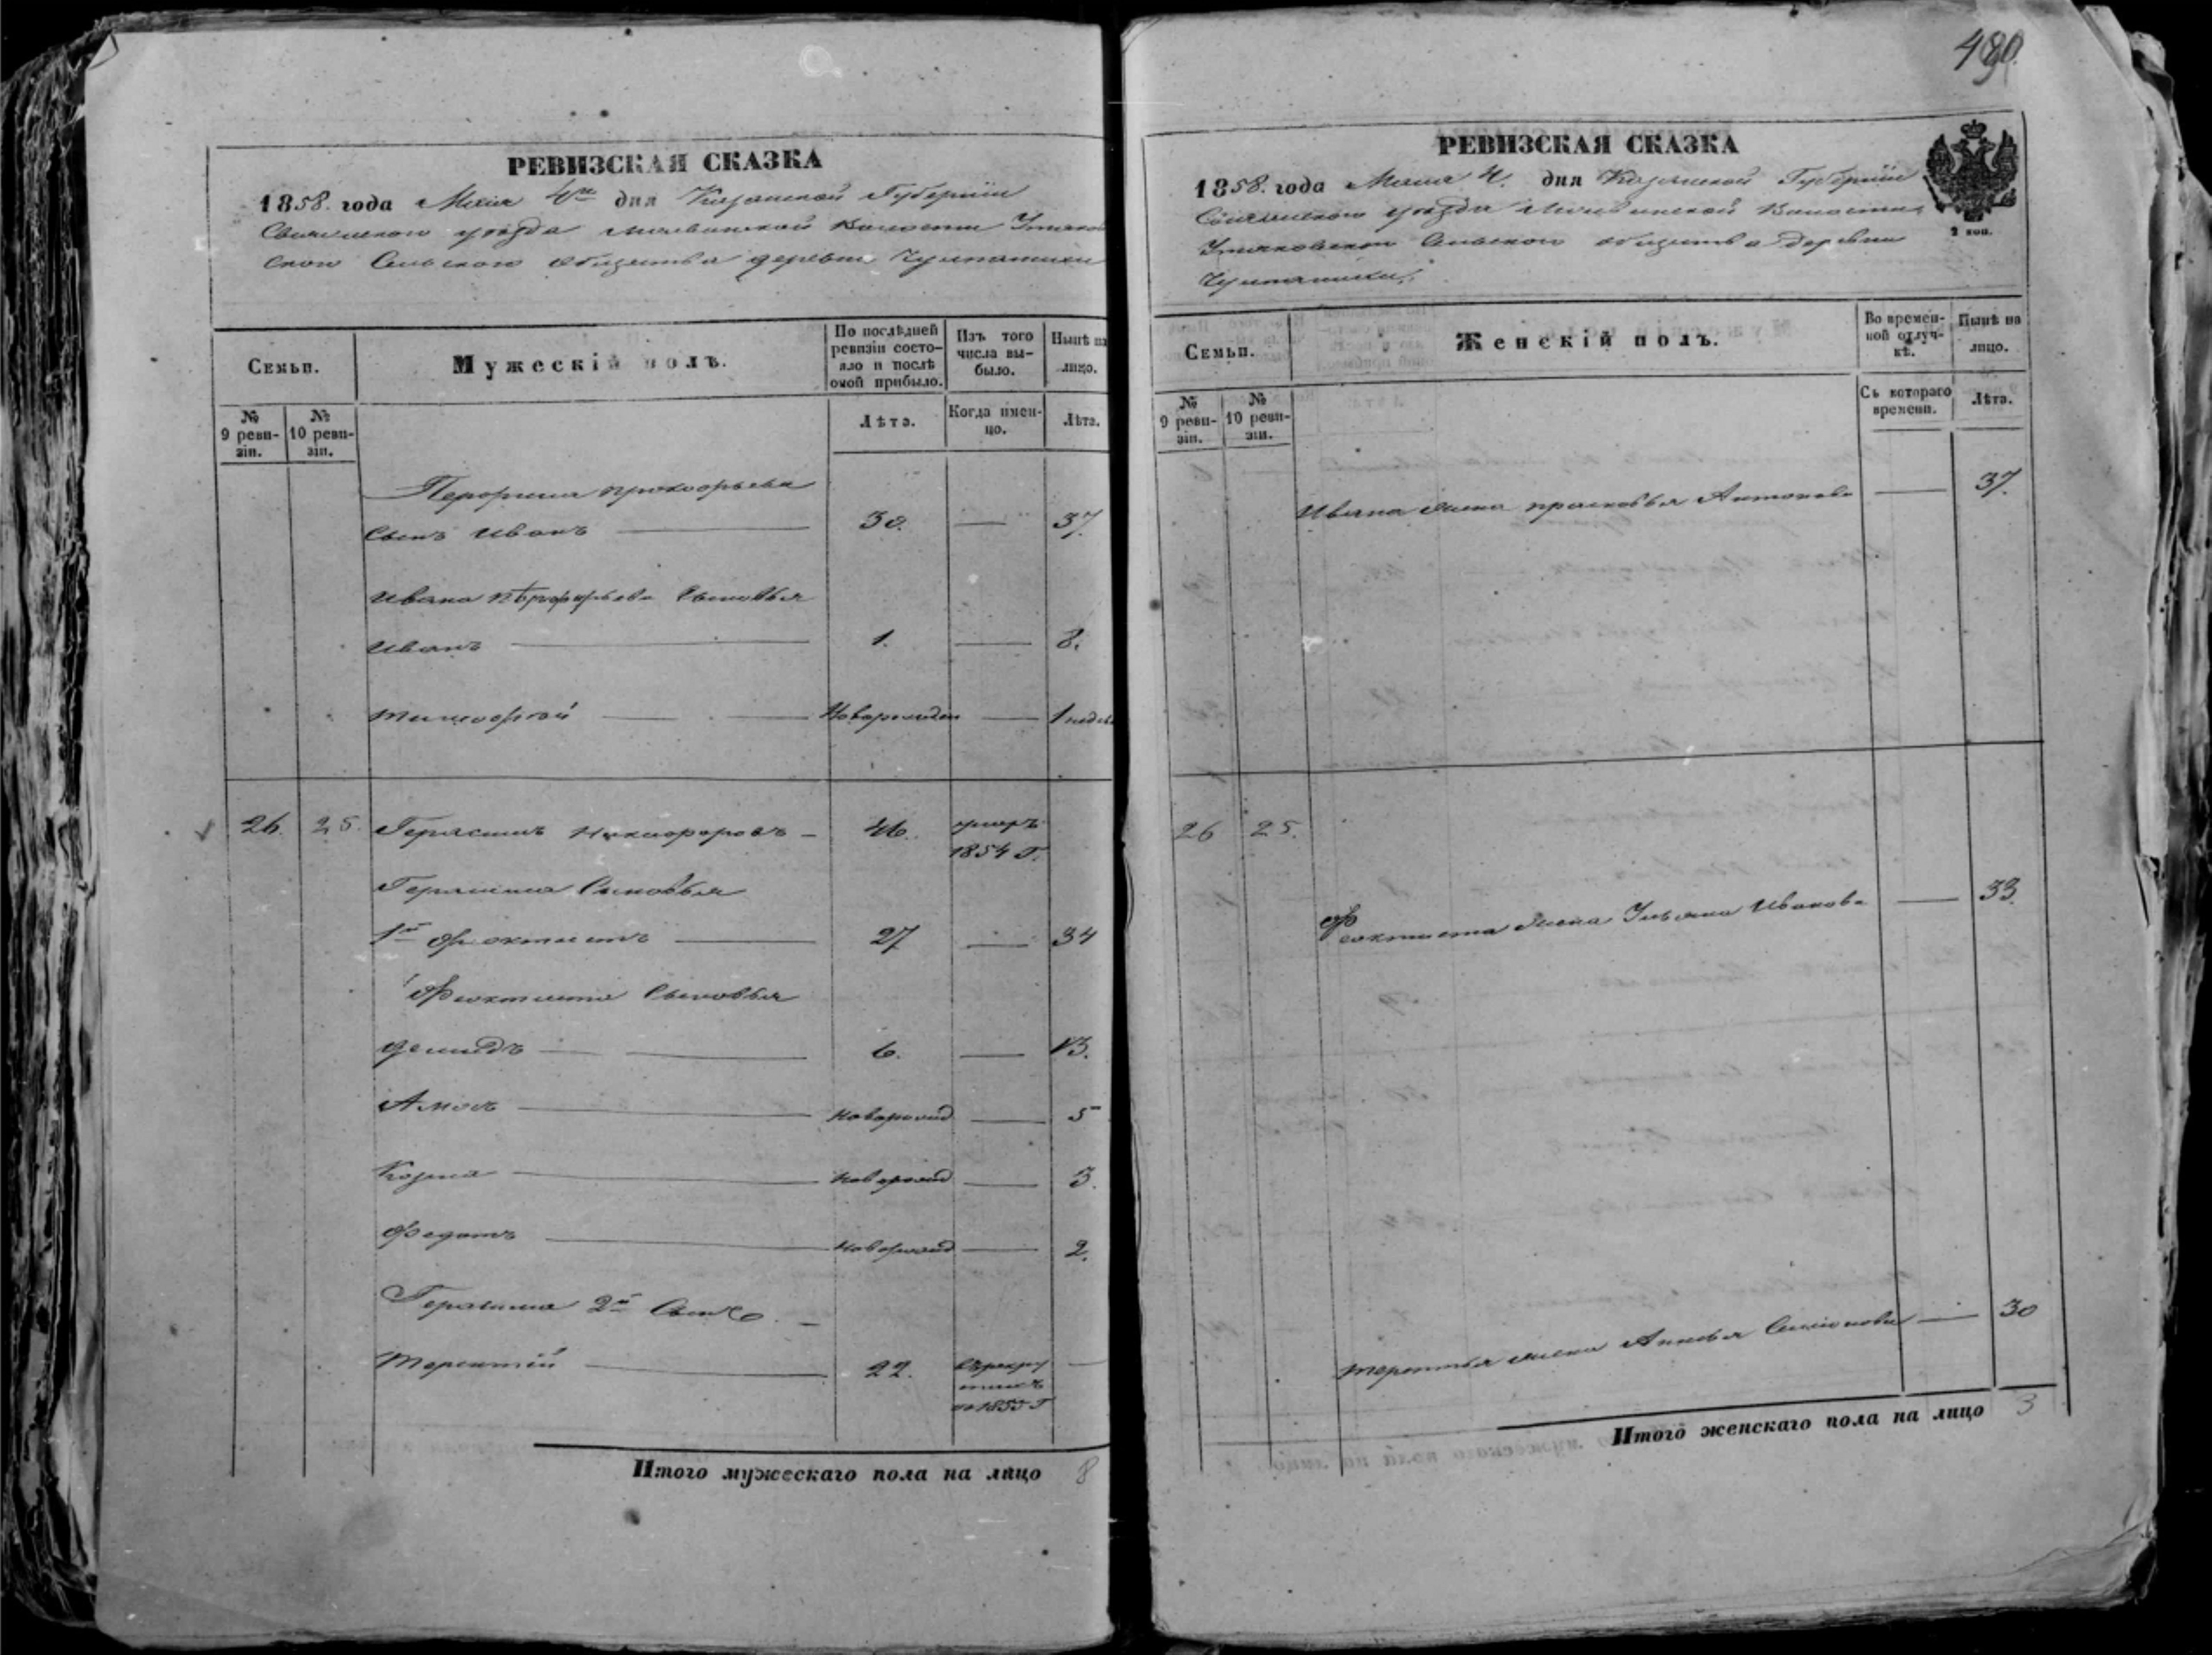 РЕВИЗСКАЯ СКАЗКА
1858 года Маія 4го дня Казанской Губерніи
Свіяжскаго уѣзда Молвинской Волости
Сельскаго общества деревни
Семьи.
Мужескій полъ.
По послѣдней ревизіи состояло и послѣ оной прибыло.
Изъ того числа выбыло.
Нынѣ на лицо.
№ 9 ревизіи.
№ 10 ревизіи.
Лѣта.
Когда именно.
Лѣта.
Сынъ Иванъ 30. 37.
Ивана Сыновья
Иванъ 1. 8.
Тимофей 1
26. 25. Герасимъ Никифоровъ 46. умеръ 1854 г.
Герасима Сыновья
1й Феоктистъ 27 34
Феоктиста Сыновья
Демидъ 6. 13.
Амосъ Новорожд 5
Козма Новорожд 3.
Федотъ Новорожд 2.
Герасима 2й Сынъ
Терентій 22.
Итого мужескаго пола на лицо 8
РЕВИЗСКАЯ СКАЗКА
1858. года Маія 4. дня Казанской Губерніи
Свіяжскаго уѣзда Молвинской Волости
Сельскаго общества деревни
2 коп.
Семьи.
Женскій полъ.
Во временной отлучкѣ.
Нынѣ на лицо.
№ 9 ревизіи.
№ 10 ревизіи.
Съ котораго времени.
Лѣта.
Ивана жена Прасковья Антонова 37.
26 25.
Феоктиста жена Ульяна Иванова 33.
Терентья жена 30
Итого женскаго пола на лицо 3